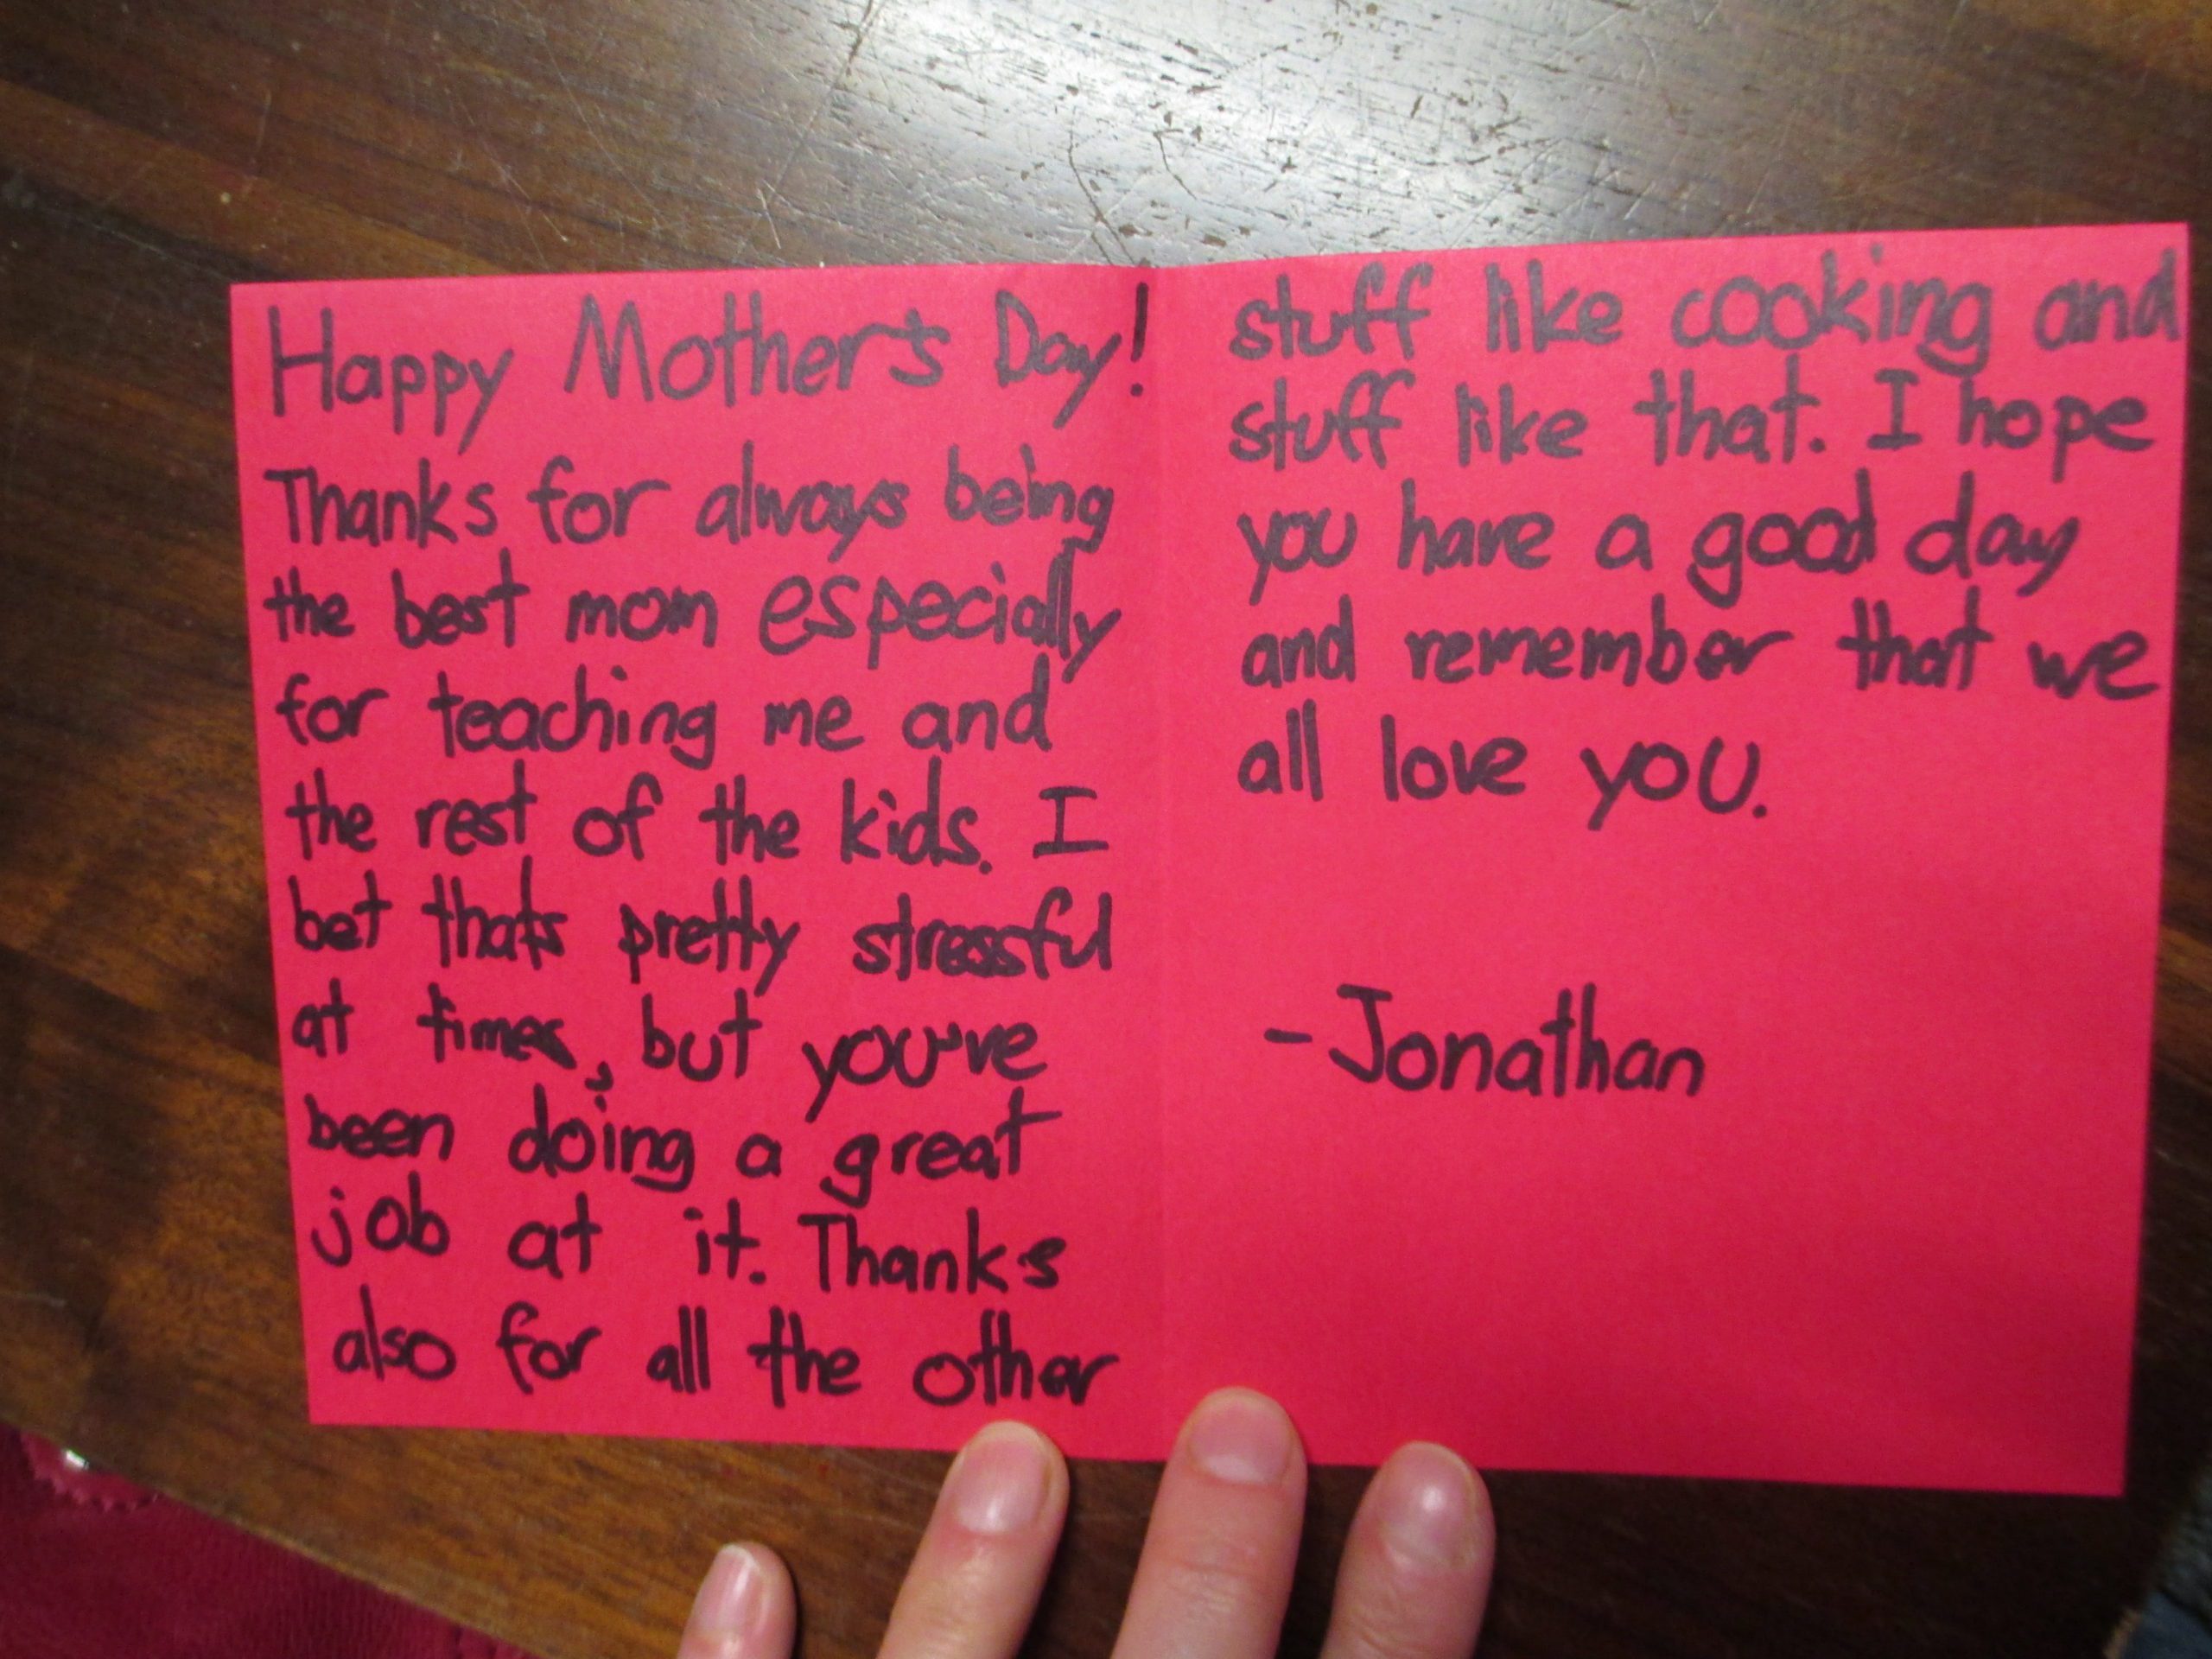 Happy Mother's Day!
Thanks for always being
the best mom especially
for teaching me and
the rest of the kids. I
bet thats pretty stressful
at times, but you've
been doing a great
job at it. Thanks
also for all the other
stuff like cooking and
stuff like that. I hope
you have a good day
and remember that we
all love you.
-Jonathan